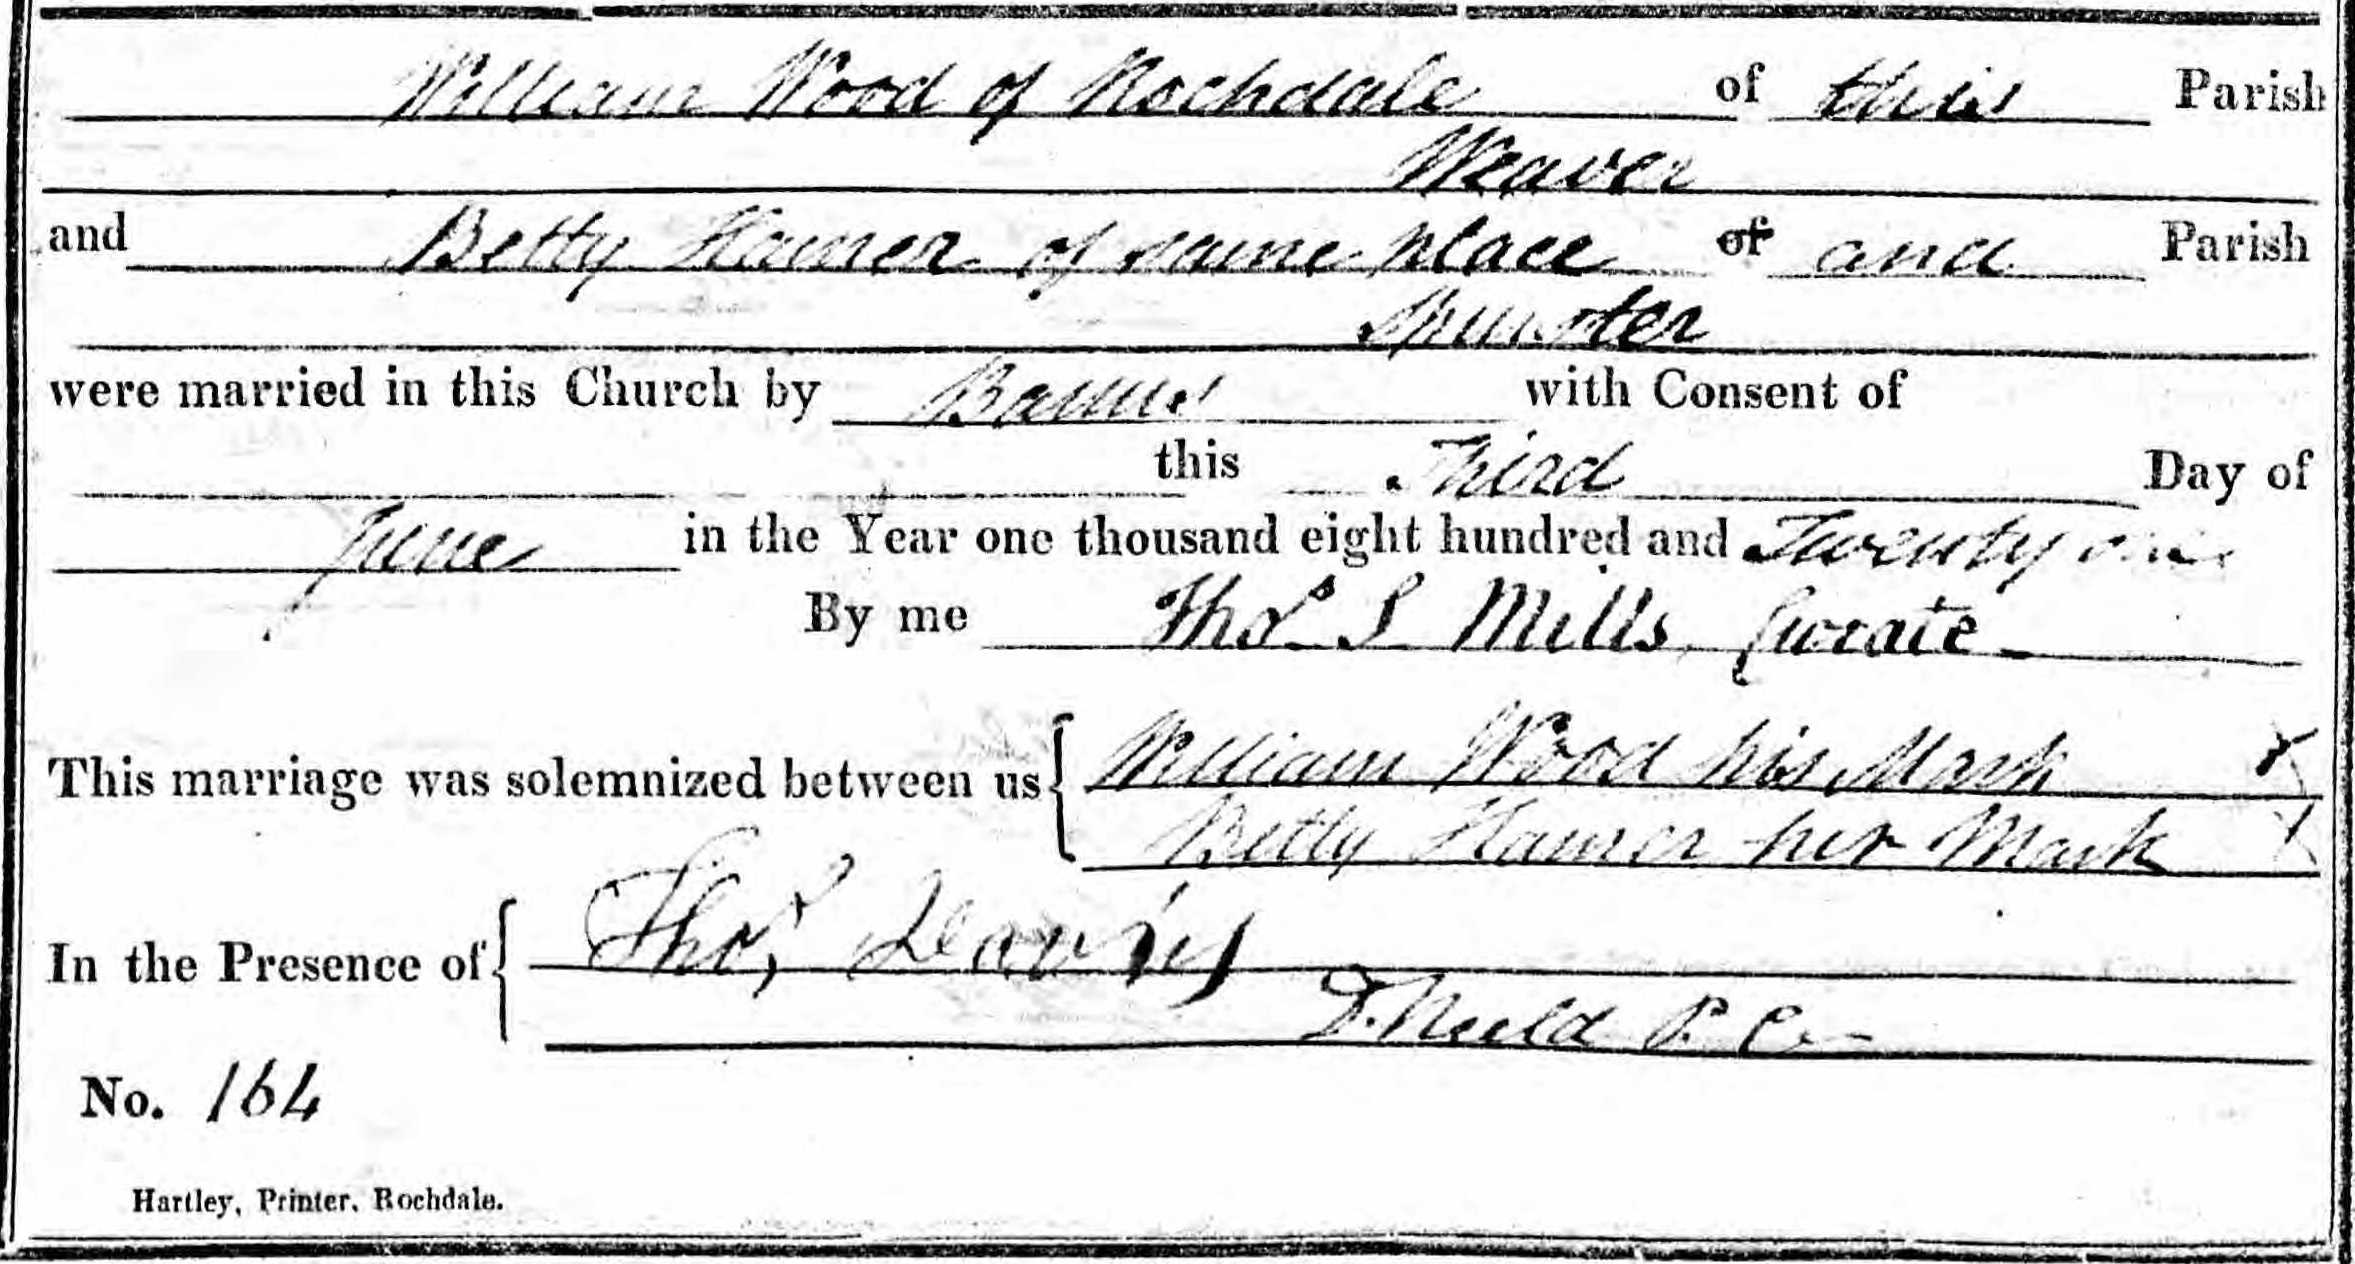 William Wood of Rochdale of this Parish
Weaver
and Betty Hamer of same place of and Parish
Spinster
were married in this Church by Banns with Consent of
this Third Day of
June in the Year one thousand eight hundred and Twenty one
By me Thos S Mills, Curate
This marriage was solemnized between us { William Wood his Mark X
Betty Hamer her Mark X
In the Presence of { Thos
D. Neild P. C.
No. 164
Hartley, Printer, Rochdale.